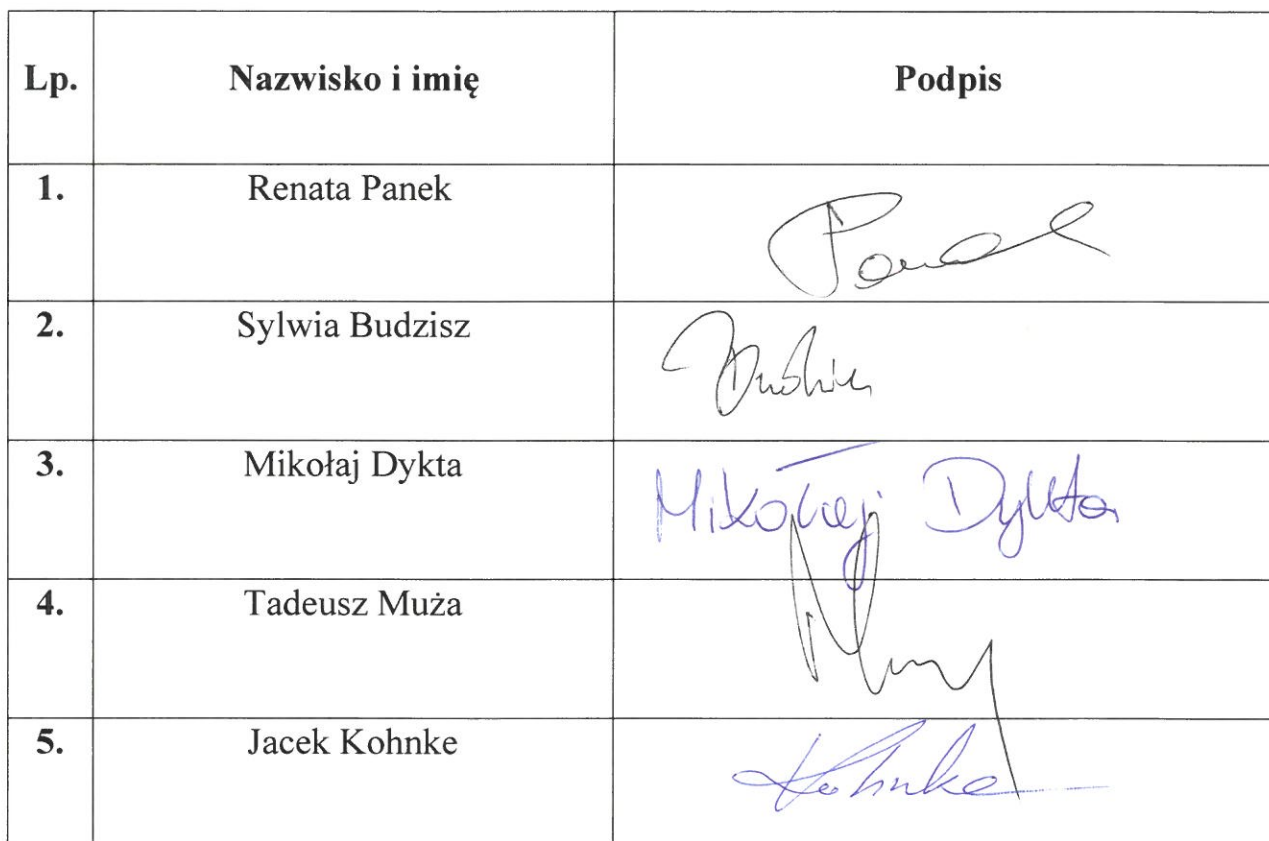 Lp. Nazwisko i imię Podpis
1. Renata Panek Panek
2. Sylwia Budzisz
3. Mikołaj Dykta Mikołaj Dykta
4. Tadeusz Muża
5. Jacek Kohnke Kohnke